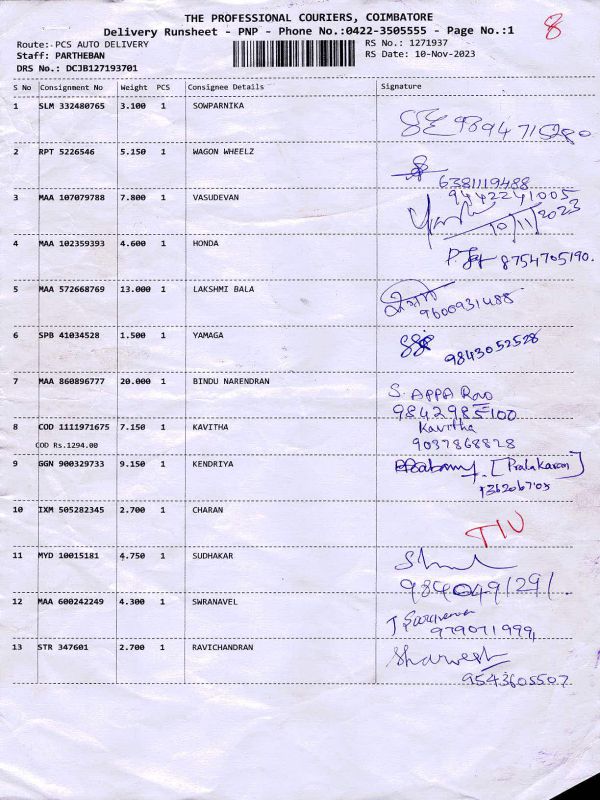 THE PROFESSIONAL COURIERS, COIMBATORE
8
Delivery Runsheet - PNP - Phone No.:0422-3505555 - Page No.:1
Route: PCS AUTO DELIVERY RS No.: 1271937
Staff: PARTHEBAN RS Date: 10-Nov-2023
DRS No.: DCJB127193701
S No Consignment No Weight PCS Consignee Details Signature
1 SLM 332480765 3.100 1 SOWPARNIKA
9894715280
2 RPT 5226546 5.150 1 WAGON WHEELZ
6381119488
3 MAA 107079788 7.800 1 VASUDEVAN 9442241005
10/11/2023
4 MAA 102359393 4.600 1 HONDA
8754705190.
5 MAA 572668769 13.000 1 LAKSHMI BALA
9600931488
6 SPB 41034528 1.500 1 YAMAGA
9843052528
7 MAA 860896777 20.000 1 BINDU NARENDRAN
S. APPA Rao
9842985100
8 COD 1111971675 7.150 1 KAVITHA Kavitha
COD Rs.1294.00 9037868828
9 GGN 900329733 9.150 1 KENDRIYA
10 IXM 505282345 2.700 1 CHARAN
11 MYD 10015181 4.750 1 SUDHAKAR
9840491291.
12 MAA 600242249 4.300 1 SWRANAVEL
13 STR 347601 2.700 1 RAVICHANDRAN
Sharvesh
9543605507